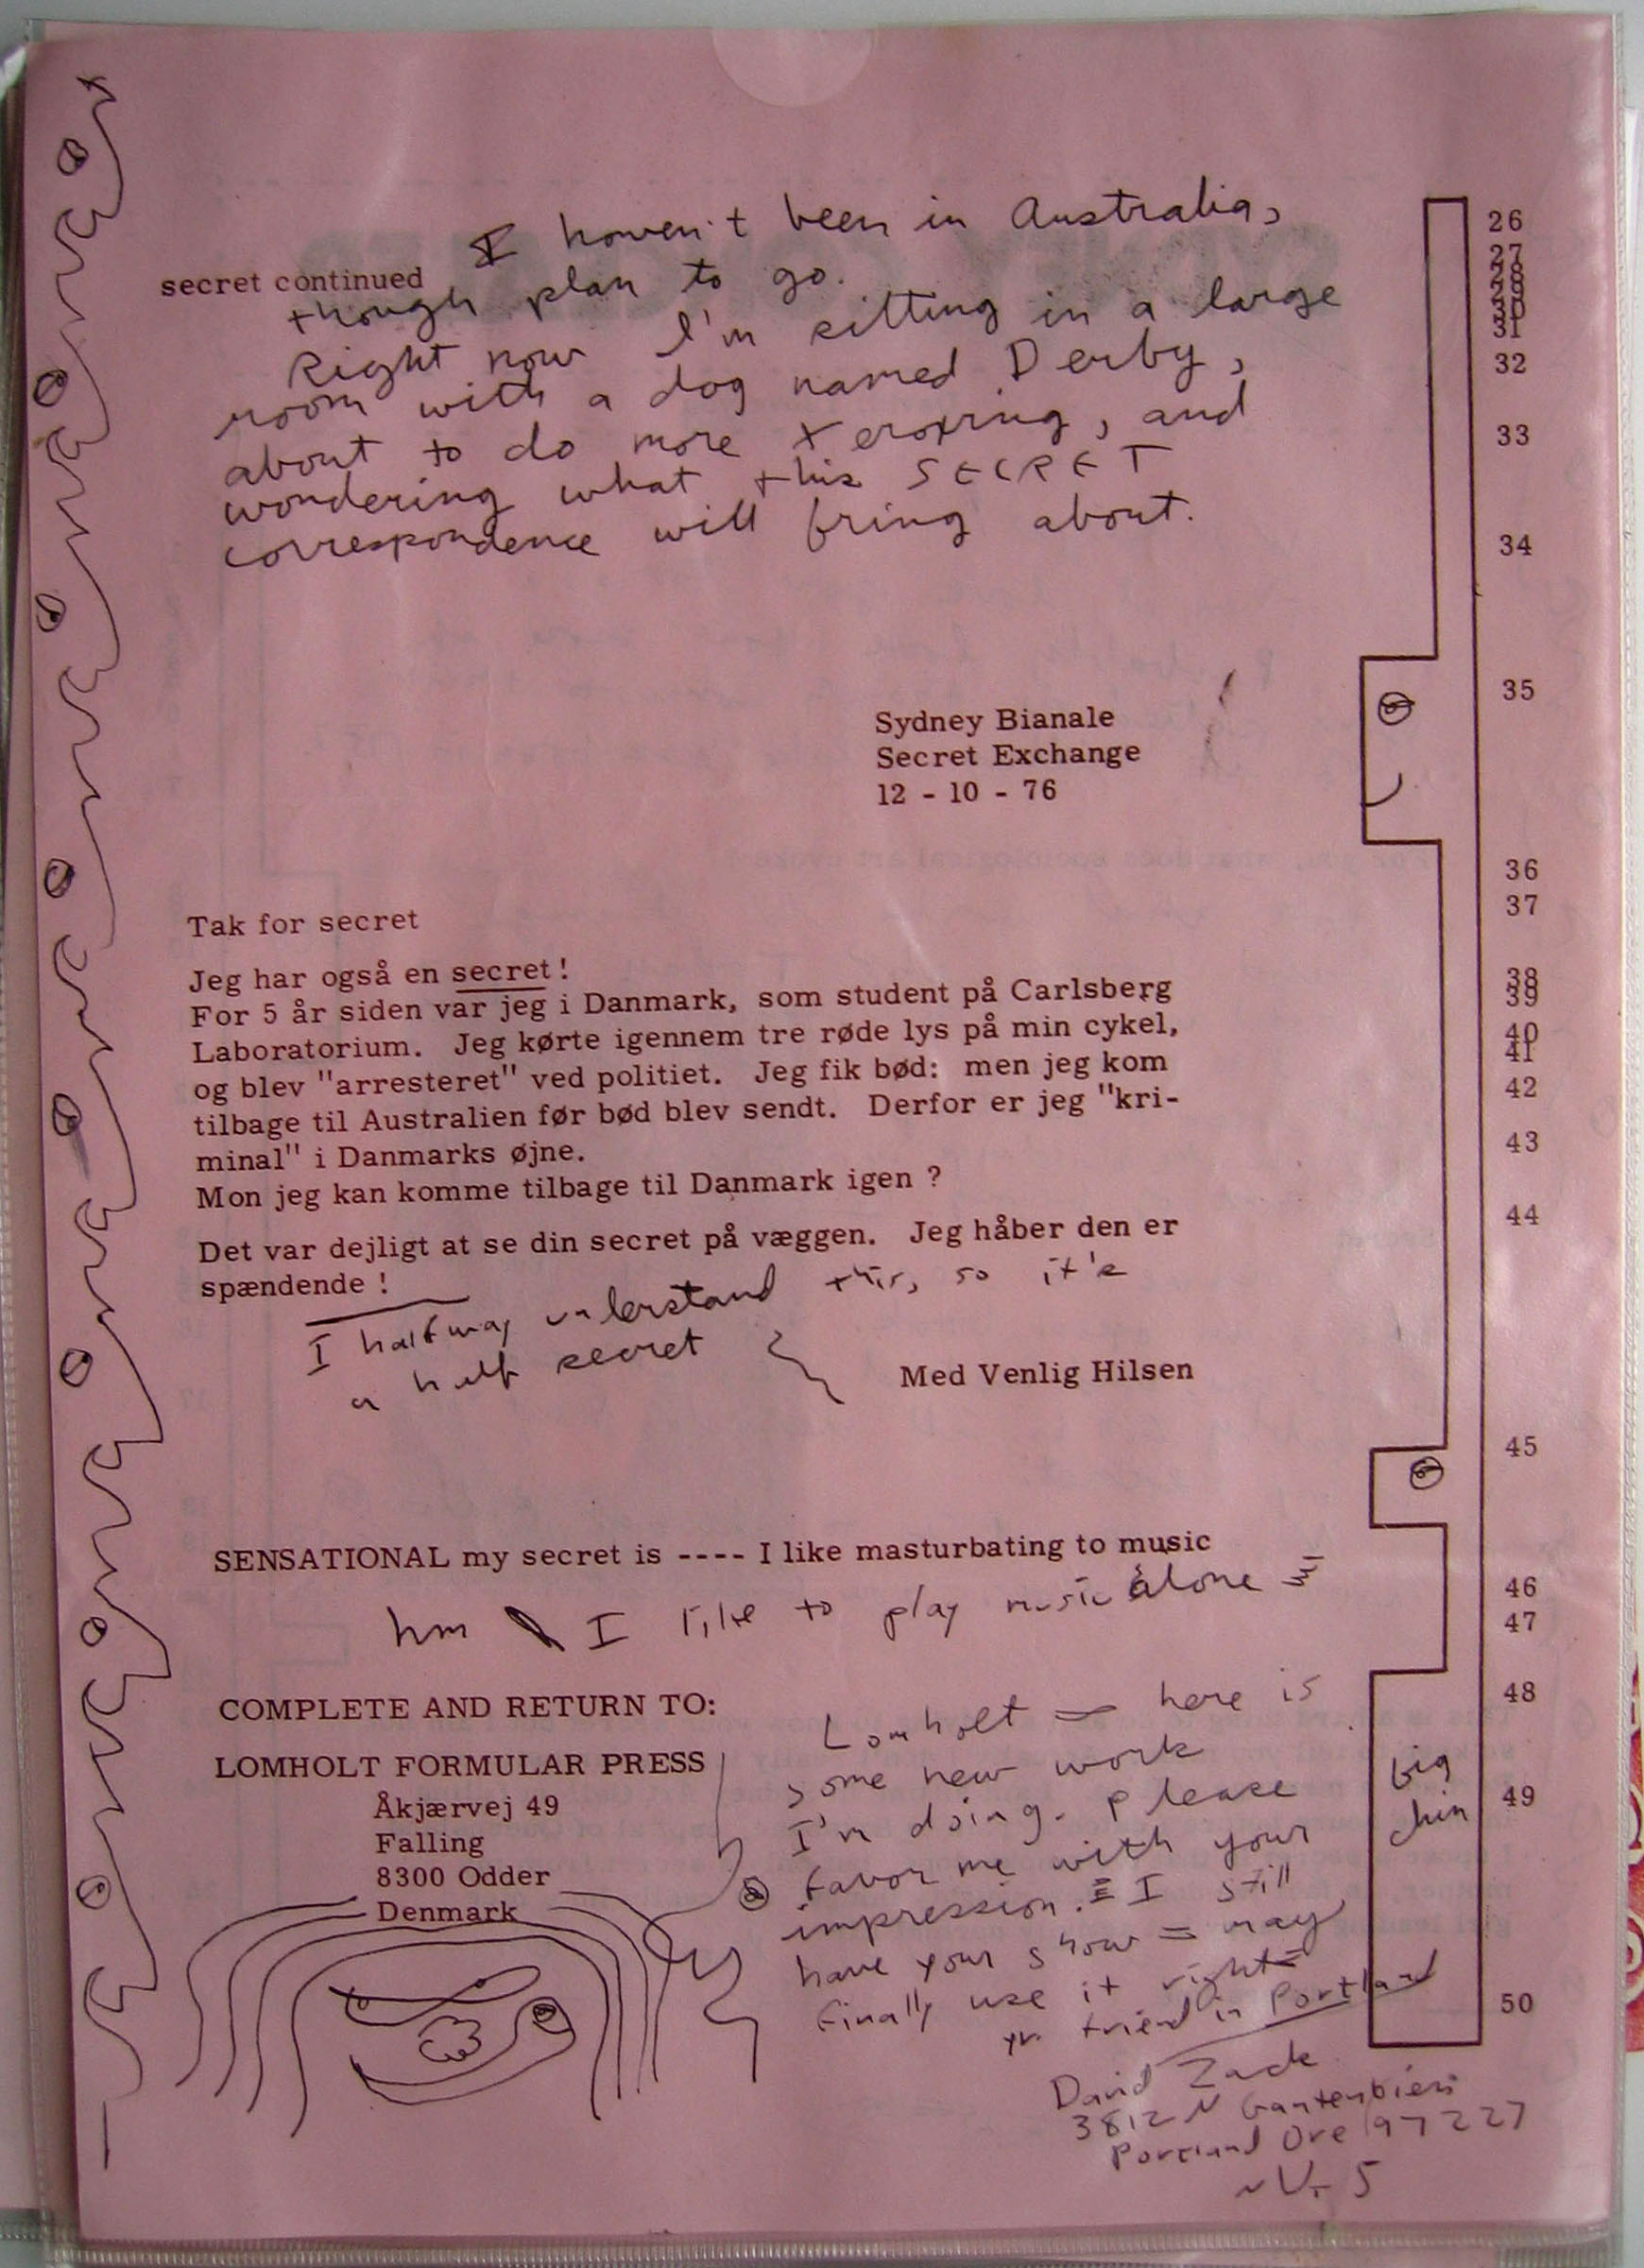 I haven't been in Australia,
secret continued
though plan to go.
Right now I'm sitting in a large
room with a dog named Derby,
about to do more xeroxing, and
wondering what this SECRET
correspondence will bring about.
Sydney Bianale
Secret Exchange
12 - 10 - 76
Tak for secret
Jeg har også en secret !
For 5 år siden var jeg i Danmark, som student på Carlsberg
Laboratorium. Jeg kørte igennem tre røde lys på min cykel,
og blev "arresteret" ved politiet. Jeg fik bød: men jeg kom
tilbage til Australien før bød blev sendt. Derfor er jeg "kri-
minal" i Danmarks øjne.
Mon jeg kan komme tilbage til Danmark igen ?
Det var dejligt at se din secret på væggen. Jeg håber den er
spændende !
I halfway understand this, so it's
a half secret
Med Venlig Hilsen
SENSATIONAL my secret is ---- I like masturbating to music
hm I like to play music alone
COMPLETE AND RETURN TO:
LOMHOLT FORMULAR PRESS
Åkjærvej 49
Falling
8300 Odder
Denmark
Lomholt = here is
some new work
I'm doing. please
favor me with your
impression. = I still
have your show = may
finally use it right =
yr friend in Portland
David Zack
3812 N Gantenbien
Portland Ore 97227
26
27
28
29
30
31
32
33
34
35
36
37
38
39
40
41
42
43
44
45
46
47
48
49
50
big
chin